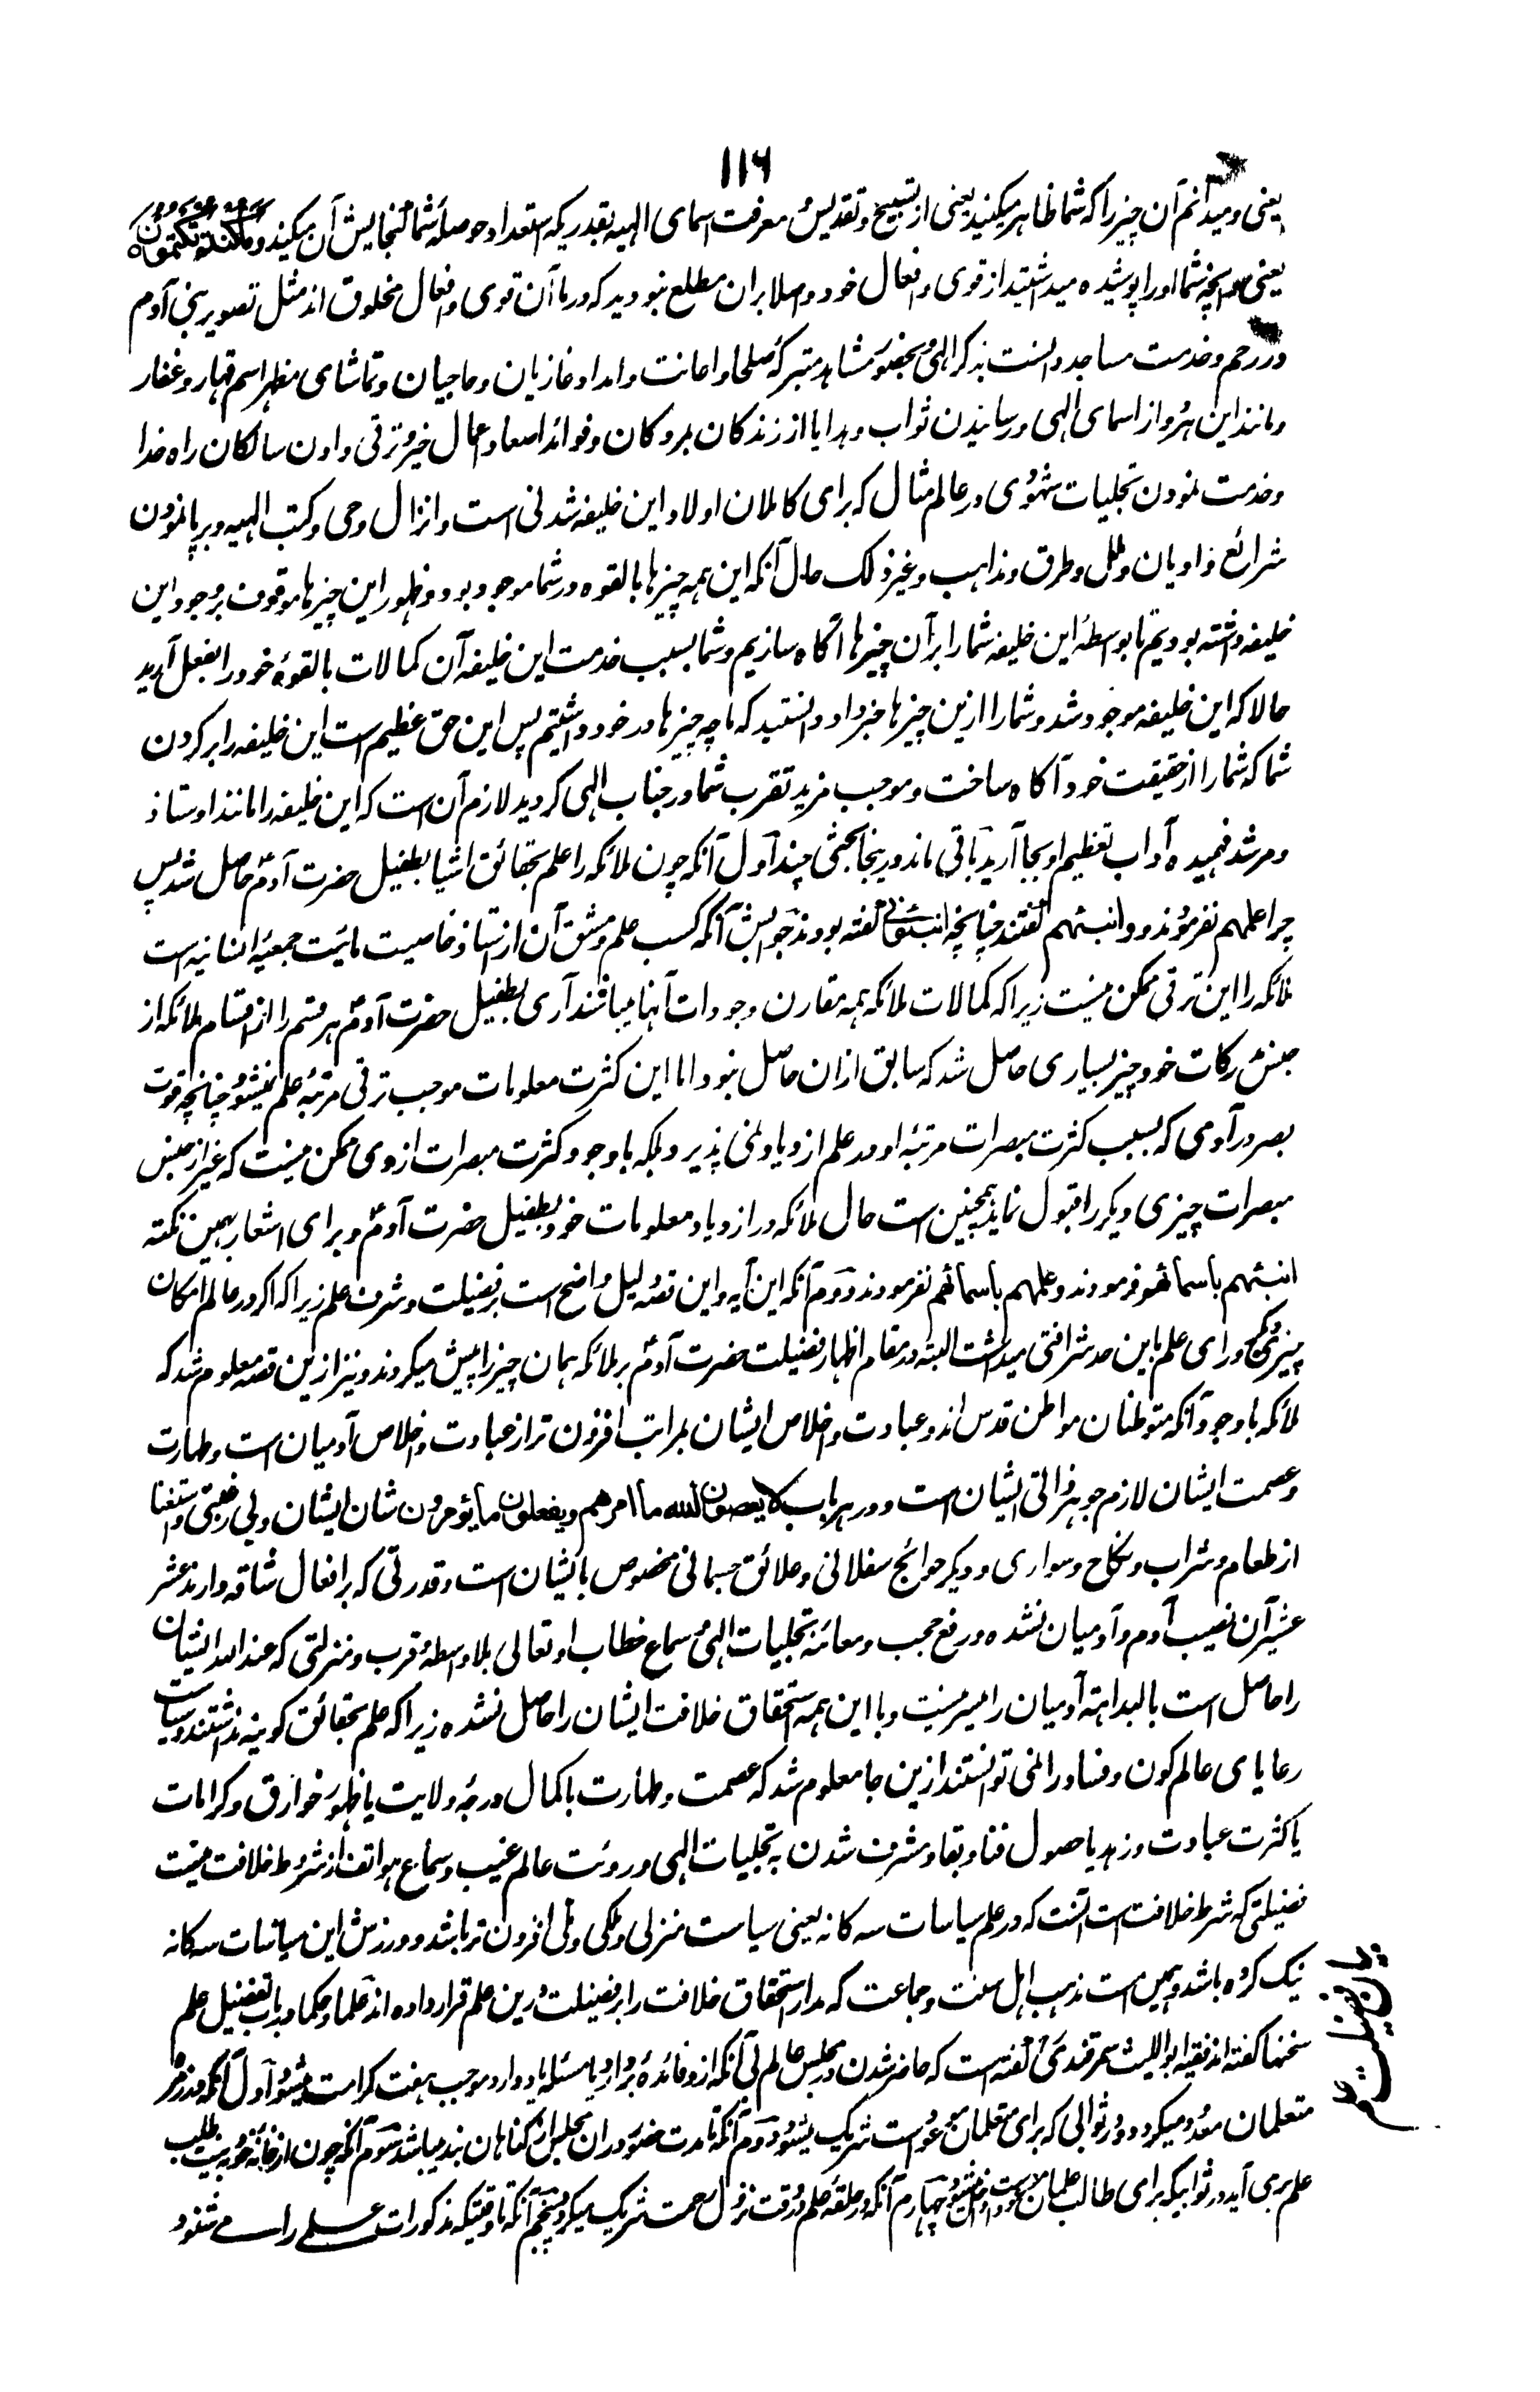 ۱۱۶
یعنی ومیدانم آن چیز را که شما ظاهر میکنید یعنی از تسبیح وتقدیس معرفت اسمای الهیه بقدریکه استعداد وحوصله شما گنجایش آن میکند وما کنتم تکتمون
یعنی وانچه شما اورا پوشیده میداشتید از قوی وافعال خود واصلا بران مطلع نبودید که درما آن قوی وافعال مخلوق اند مثل تصویر بنی آدم
در رحم وخدمت مساجد والسنت بذکر الهی وبحضور مشاهد متبرکه صلحا واعانت وامداد غازیان وحاجیان وتماشای مظهر اسم قهار وغفار
ومانند این هر دو از اسمای الهی ورسانیدن ثواب وهدایا از زندگان بمردگان وفوائد اصعاد اعمال خیر وترقی دادن سالکان راه خدا
وخدمت نمودن تجلیات شهودی در عالم مثال که برای کاملان اولاد این خلیفه شدنی است وانزال وحی وکتب الهیه وبرپا نمودن
شرائع وادیان وملل وطرق ومذاهب وغیر ذلک حال آنکه این همه چیزها بالقوه در شما موجود بود وظهور این چیزها موقوف بر وجود این
خلیفه داشته بودیم تا بواسطه این خلیفه شما را بر آن چیزها آگاه سازیم وشما بسبب خدمت این خلیفه آن کمالات بالقوه خود را بفعل آرید
حالا که این خلیفه موجود شد وشما را ازین چیزها خبر داد دانستید که ما چه چیزها در خود داشتیم پس این حق عظیم است این خلیفه را بر گردن
شما که شما را از حقیقت خود آگاه ساخت وموجب مزید تقرب شما در جناب الهی گردید لازم آن است که این خلیفه را مانند اوستاذ
ومرشد فهمیده آداب تعظیم او بجا آرید باقی ماند درینجا بحثی چند اول آنکه چون ملائکه را علم بحقائق اشیا بطفیل حضرت آدمؑ حاصل شد پس
چرا علمهم نفرمودند وانبئهم گفتند چنانچه انبئونی گفته بودند جوابش آنکه کسب علم ومشق آن از استاذ خاصیت مائیت جمعیه انسانیه است
ملائکه را این ترقی ممکن نیست زیرا که کمالات ملائکه همه مقارن وجودات آنها میباشند آری بطفیل حضرت آدمؑ هر قسم را از اقسام ملائکه از
جنس مدرکات خود چیز بسیاری حاصل شد که سابق ازان حاصل نبود اما این کثرت معلومات موجب ترقی مرتبه علم نمیشود چنانچه قوت
بصر در آدمی که بسبب کثرت مبصرات مرتبه او در علم ازدیاد نمی پذیرد بلکه با وجود کثرت مبصرات از وی ممکن نیست که غیر از جنس
مبصرات چیزی دیگر را قبول نماید همچنین است حال ملائکه در ازدیاد معلومات خود بطفیل حضرت آدمؑ وبرای اشعار بهمین نکته
انبئهم باسمائهم فرمودند وعلمهم باسمائهم نفرمودند دوم آنکه این آیه واین قصه دلیل واضح است بر فضیلت وشرف علم زیرا که اگر در عالم امکان
چیزی دیگر ورای علم باین حد شرافتی میداشت البته در مقام اظهار فضیلت حضرت آدمؑ بر ملائکه همان چیز را پیش میکردند ونیز ازین قصه معلوم شد که
ملائکه با وجود آنکه متوطنان مواطن قدس اند وعبادت واخلاص ایشان بمراتب افزون تر از عبادت واخلاص آدمیان است وطهارت
وعصمت ایشان لازم جوهر ذاتی ایشان است ودر هر باب لا یعصون الله ما امرهم ویفعلون ما یؤمرون شان ایشان وبی رغبتی واستغنا
از طعام وشراب ونکاح وسواری ودیگر حوائج سفلانی وعلائق جسمانی مخصوص بایشان است وقدرتی که بر افعال شاقه دارند عشر
عشیر آن نصیب آدم وآدمیان نشده ورفع حجب ومعائنه تجلیات الهی وسماع خطاب او تعالی بلا واسطه وقرب ومنزلتی که عند الله ایشان
را حاصل است بالبداهة آدمیان را میسر نیست وبا این همه استحقاق خلافت ایشان را حاصل نشده زیرا که علم بحقائق کونیه نداشتند وسیاست
رعایای عالم کون وفساد را نمی توانستند ازین جا معلوم شد که عصمت وطهارت با کمال درجه ولایت یا ظهور خوارق وکرامات
یا کثرت عبادت وزهد یا حصول فنا وبقا ومشرف شدن به تجلیات الهی ورؤیت عالم غیب وسماع هواتف از شروط خلافت نیست
فضیلتی که شرط خلافت است آنست که در علم سیاسات سه گانه یعنی سیاست منزلی وملکی ودینی افزون تر باشد وورزش این سیاسات سه گانه
نیک کرده باشد وهمین است مذهب اهل سنت وجماعت که مدار استحقاق خلافت را بر فضیلت درین علم قرار داده اند علما وحکما در باب تفضیل علم
سخنها گفته اند فقیه ابو اللیث سمرقندیؒ گفته است که حاضر شدن در مجلس عالم بی آنکه ازو فائده بردارد یا مسئله یاد دارد موجب هفت کرامت میشود اول آنکه در زمره
متعلمان معدود میگردد ودر ثوابی که برای متعلمان موعود است شریک میشود دوم آنکه تا مدت حضور دران مجلس از گناهان بند میباشد سوم آنکه چون از خانه خود به نیت طلب
علم برمی آید در ثوابیکه برای طالب علمان موعود است داخل میشود چهارم آنکه در حلقه علم در وقت نزول رحمت شریک میگردد پنجم آنکه تا وقتیکه مذکورات علمی را می شنود
بیان فضیلت علم